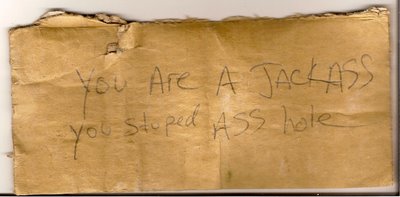 you Are A JACKASS
you stuped ASS hole